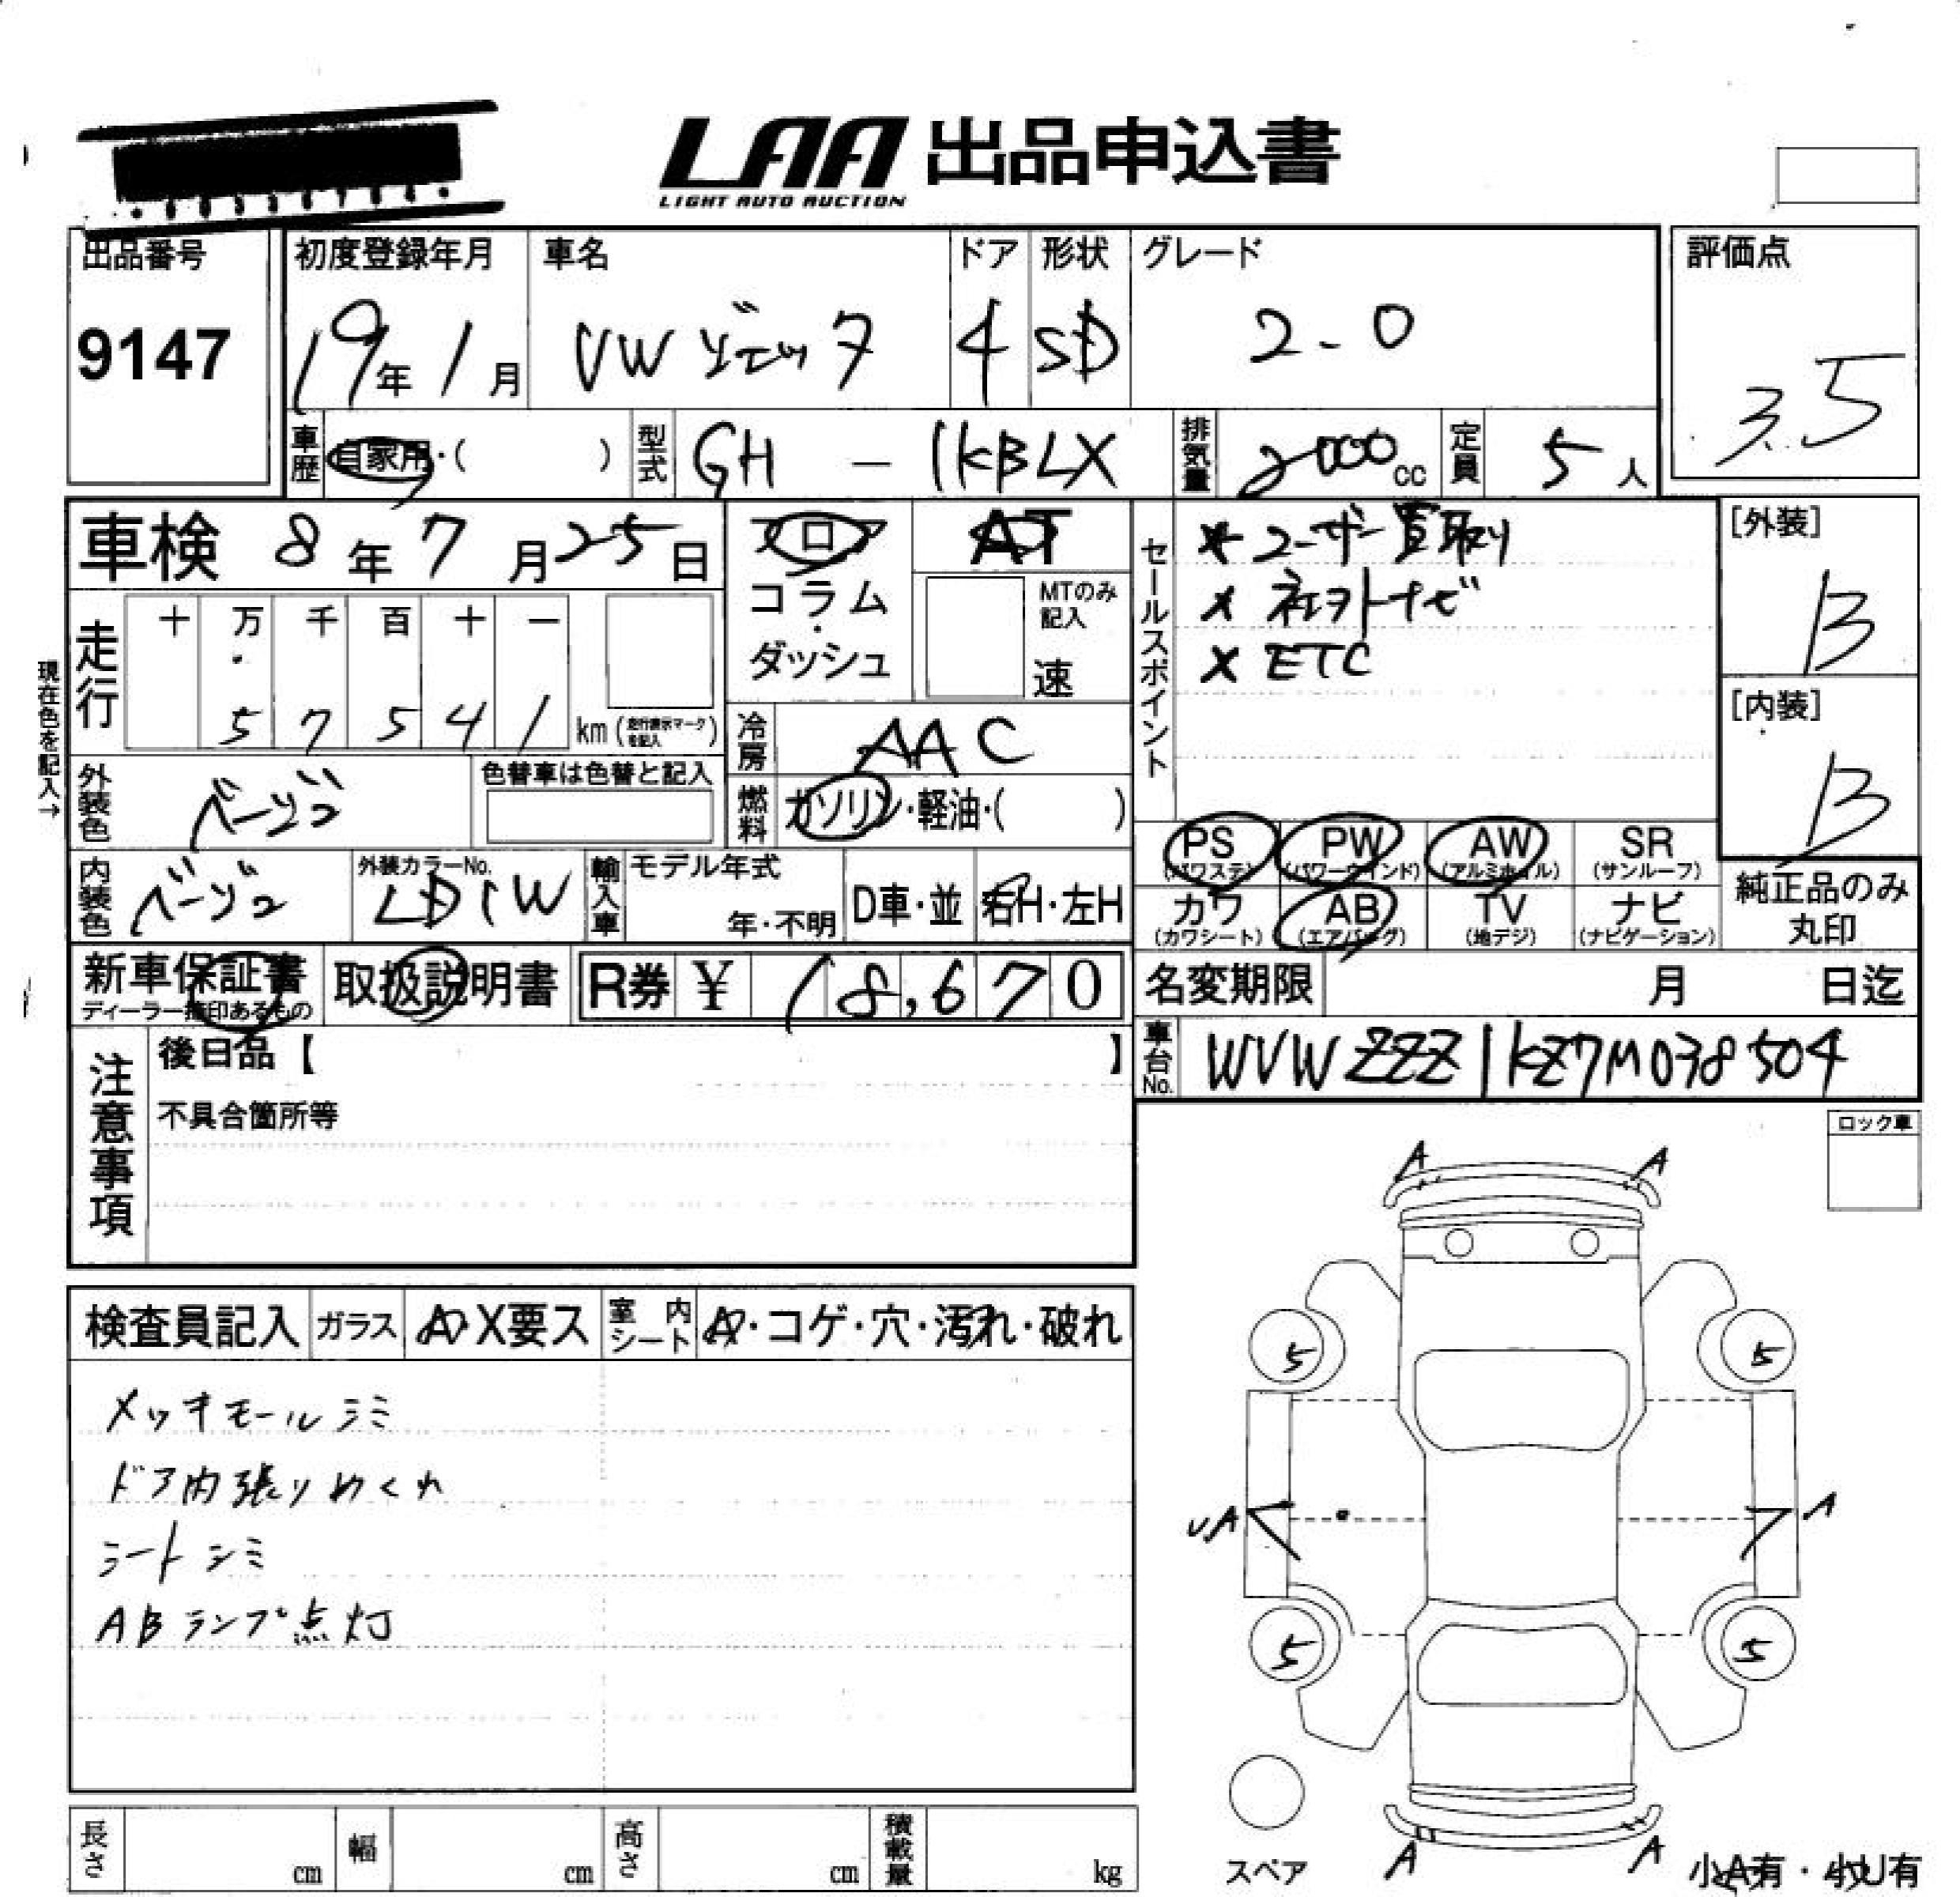 LAA 出品申込書
LIGHT AUTO AUCTION
出品番号
9147
初度登録年月
19年1月
車名
VW ジェッタ
ドア
4
形状
SD
グレード
2.0
評価点
3.5
車歴 自家用・( )
型式 GH - 1KBLX
排気量 2000cc
定員 5人
車検 8年7月25日
フロア
コラム・ダッシュ
AT
MTのみ記入
速
セールスポイント
× ユーザー買取り
× 社外ナビ
× ETC
[外装]
B
[内装]
B
現在色を記入→
走行 十 万 千 百 十 一
5 7 5 4 1 km (走行表示マークを記入)
冷房 AAC
燃料 ガソリン・軽油・( )
外装色 ベージュ
色替車は色替と記入
内装色 ベージュ
外装カラーNo.
LD1W
輸入車
モデル年式
年・不明
D車・並
右H・左H
PS (パワステ)
PW (パワーウインド)
AW (アルミホイル)
SR (サンルーフ)
カワ (カワシート)
AB (エアバーグ)
TV (地デジ)
ナビ (ナビゲーション)
純正品のみ丸印
新車保証書
ディーラー捺印あるもの
取扱説明書
R券 ¥ 18,670
名変期限 月 日迄
車台No. WVWZZZ1KZ7M038504
注意事項
後日品【 】
不具合箇所等
ロック車
検査員記入
ガラス A・X要ス
室内シート A・コゲ・穴・汚れ・破れ
メッキモールシミ
ドア内張りめくれ
シートシミ
ABランプ点灯
A A
5 5
UA A
5 5
A A
スペア
小A有・小U有
長さ cm
幅 cm
高さ cm
積載量 kg